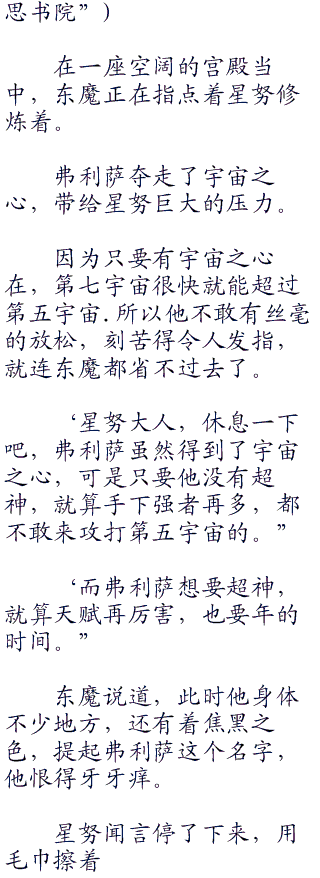 思书院”)
在一座空阔的宫殿当
中，东魔正在指点着星努修
炼着。
弗利萨夺走了宇宙之
心，带给星努巨大的压力。
因为只要有宇宙之心
在，第七宇宙很快就能超过
第五宇宙.所以他不敢有丝毫
的放松，刻苦得令人发指，
就连东魔都省不过去了。
‘星努大人，休息一下
吧，弗利萨虽然得到了宇宙
之心，可是只要他没有超
神，就算手下强者再多，都
不敢来攻打第五宇宙的。”
‘而弗利萨想要超神，
就算天赋再厉害，也要年的
时间。”
东魔说道，此时他身体
不少地方，还有着焦黑之
色，提起弗利萨这个名字，
他恨得牙牙痒。
星努闻言停了下来，用
毛巾擦着